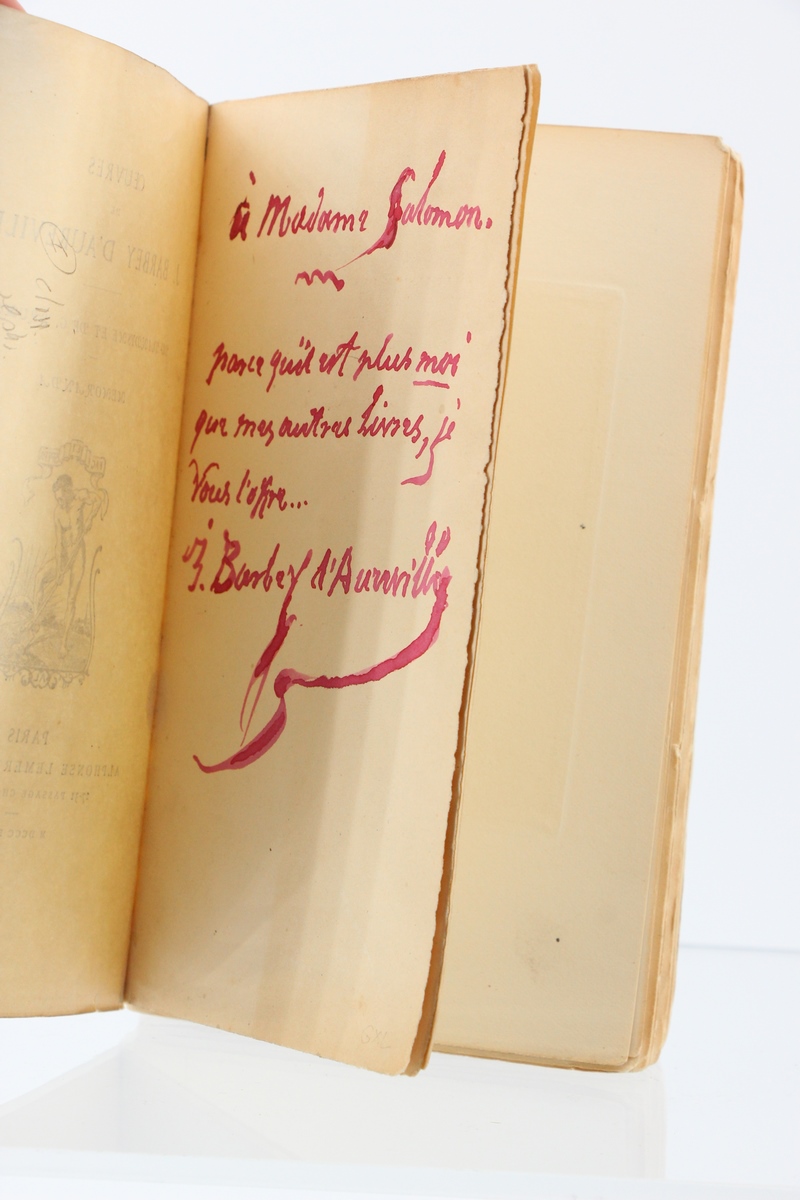 ŒUVRES
DE
J. BARBEY D'AUREVILLY
PARIS
ALPHONSE LEMER
à Madame Salomon.
parce qu'il est plus moi
que mes autres Livres, je
Vous l'offre...
J. Barbey d'Aurevilly